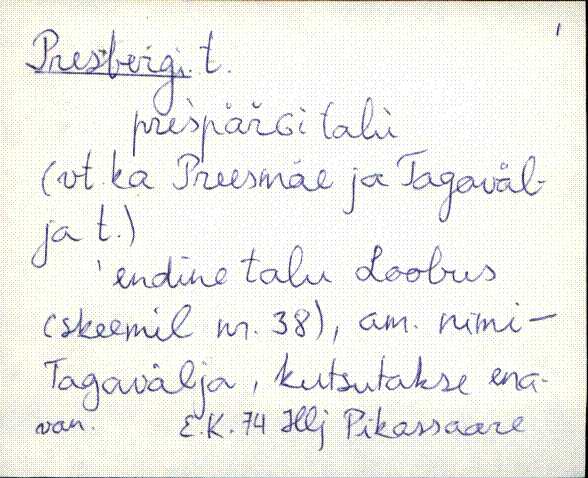 Presbergi t.
prespärGi talu
(vt. ka Preesmäe ja Tagaväl-
ja t.)
'endine talu Loobus
(skeemil nr. 38), am. nimi-
Tagavälja, kutsutakse ena-
van. E.K. 74 Hlj Pikassaare